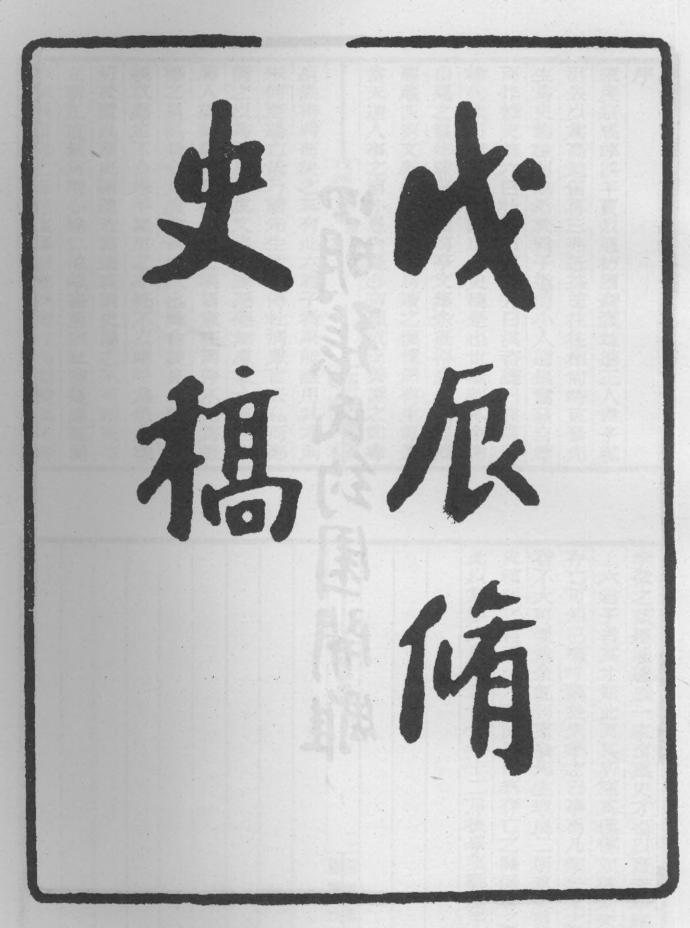 戊辰脩
史稿